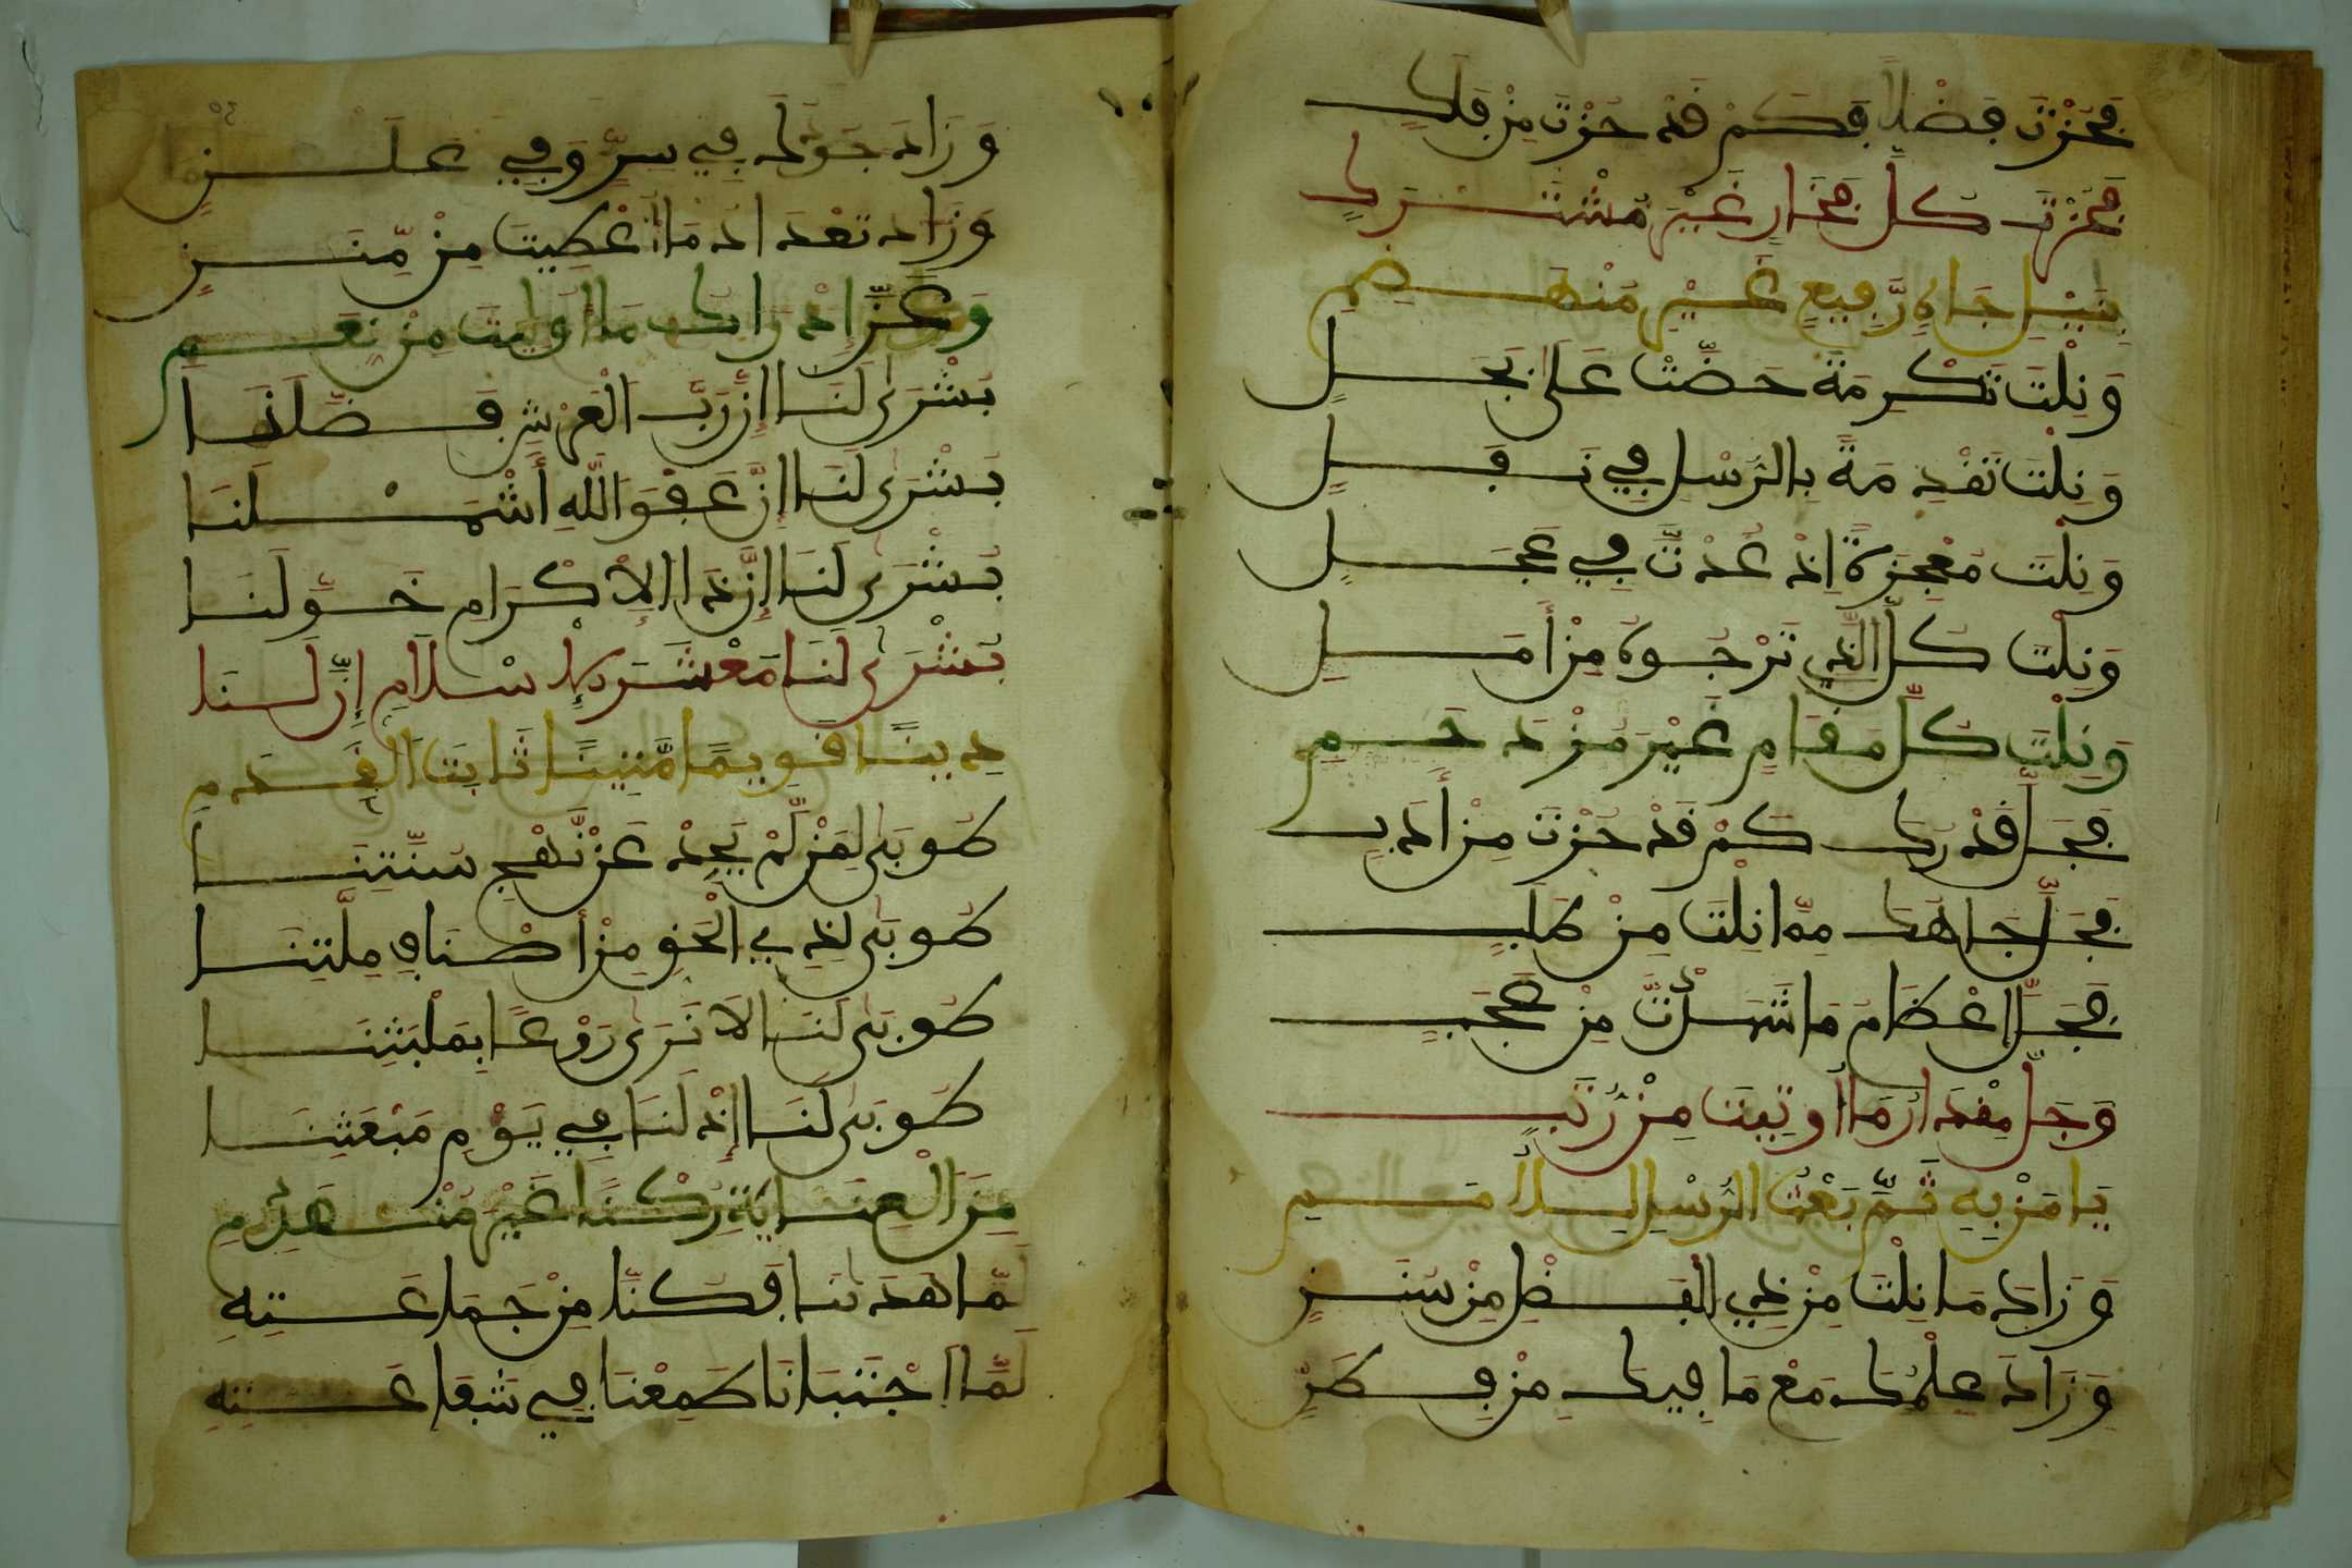 فَحُزْتَ فَضْلاً فَكَمْ قَدْ حُزْتَ مِنْ فَلَكٍ
فَحُزْتَ كُلَّ فَخَارٍ غَيْرَ مُشْتَرَكٍ
بِنَيْلِ جَاهٍ رَّفِيعٍ غَيْرِ مُنْهَضِمِ
وَنِلْتَ تَكْرِمَةً حَضَّتْ عَلَى بَجَلٍ
وَنِلْتَ تَقْدِمَةً بِالرُّسْلِ فِي نَفَلٍ
وَنِلْتَ مُعْجِزَةً إِذْ عُدْتَّ فِي عَجَلٍ
وَنِلْتَ كُلَّ الَّذِي تَرْجُوهُ مِنْ أَمَلٍ
وَنِلْتَ كُلَّ مَقَامٍ غَيْرَ مُزْدَحَمِ
فَجَلَّ قَدْرُكَ كَمْ قَدْ حُزْتَ مِنْ أَدَبٍ
فَجَلَّ جَاهُكَ مِمَّا نِلْتَ مِنْ طَلَبٍ
فَجَلَّ إِعْظَامُ مَا شَهِدْتَّ مِنْ عَجَبٍ
وَجَلَّ مِقْدَارُ مَا أُوتِيتَ مِنْ رُّتَبٍ
يَا مَنْ بِهِ تَمَّ بَعْثُ الرُّسْلِ لِلْأُمَمِ
وَزَادَ مَا نِلْتَ مِنْ ذِي الْفَضْلِ مِنْ سَنَنٍ
وَزَادَ عِلْمُكَ مَعْ مَا فِيكَ مِنْ فِطَنٍ
وَزَادَ جُودُكَ فِي سِرٍّ وَفِي عَلَنٍ
وَزَادَ تَعْدَادُ مَا أُعْطِيتَ مِنْ مِّنَنٍ
وَعَزَّ إِدْرَاكُ مَا أُولِيتَ مِنْ نِّعَمِ
بُشْرَى لَنَا إِنَّ رَبَّ الْعَرْشِ فَضَّلَنَا
بُشْرَى لَنَا إِنَّ عَفْوَ اللَّهِ أَشْمَلَنَا
بُشْرَى لَنَا إِنَّ ذَا الإِكْرَامِ خَوَّلَنَا
بُشْرَى لَنَا مَعْشَرَ الإِسْلاَمِ إِنَّ لَنَا
دِينًا قَوِيمًا مَّتِينًا ثَابِتَ الْقَدَمِ
طُوبَى لِمَنْ لَّمْ يَحِدْ عَنْ نَّهْجِ سُنَّتِنَا
طُوبَى لِذِي الْحَقِ مِنْ أَصْنَافِ مِلَّتِنَا
طُوبَى لَنَا لاَ نَرَى رَوْعًا بِمَلْبَثِنَا
طُوبَى لَنَا إِذْ لَنَا فِي يَوْمِ مَبْعَثِنَا
مِنَ الْعِنَايَةِ رُكْنًا غَيْرَ مُنْهَدِمِ
لَمَّا هَدَانَا فَكُنَّا مِنْ جَمَاعَتِهِ
لَمَّا اجْتَبَانَا طَمِعْنَا فِي شَفَاعَتِهِ